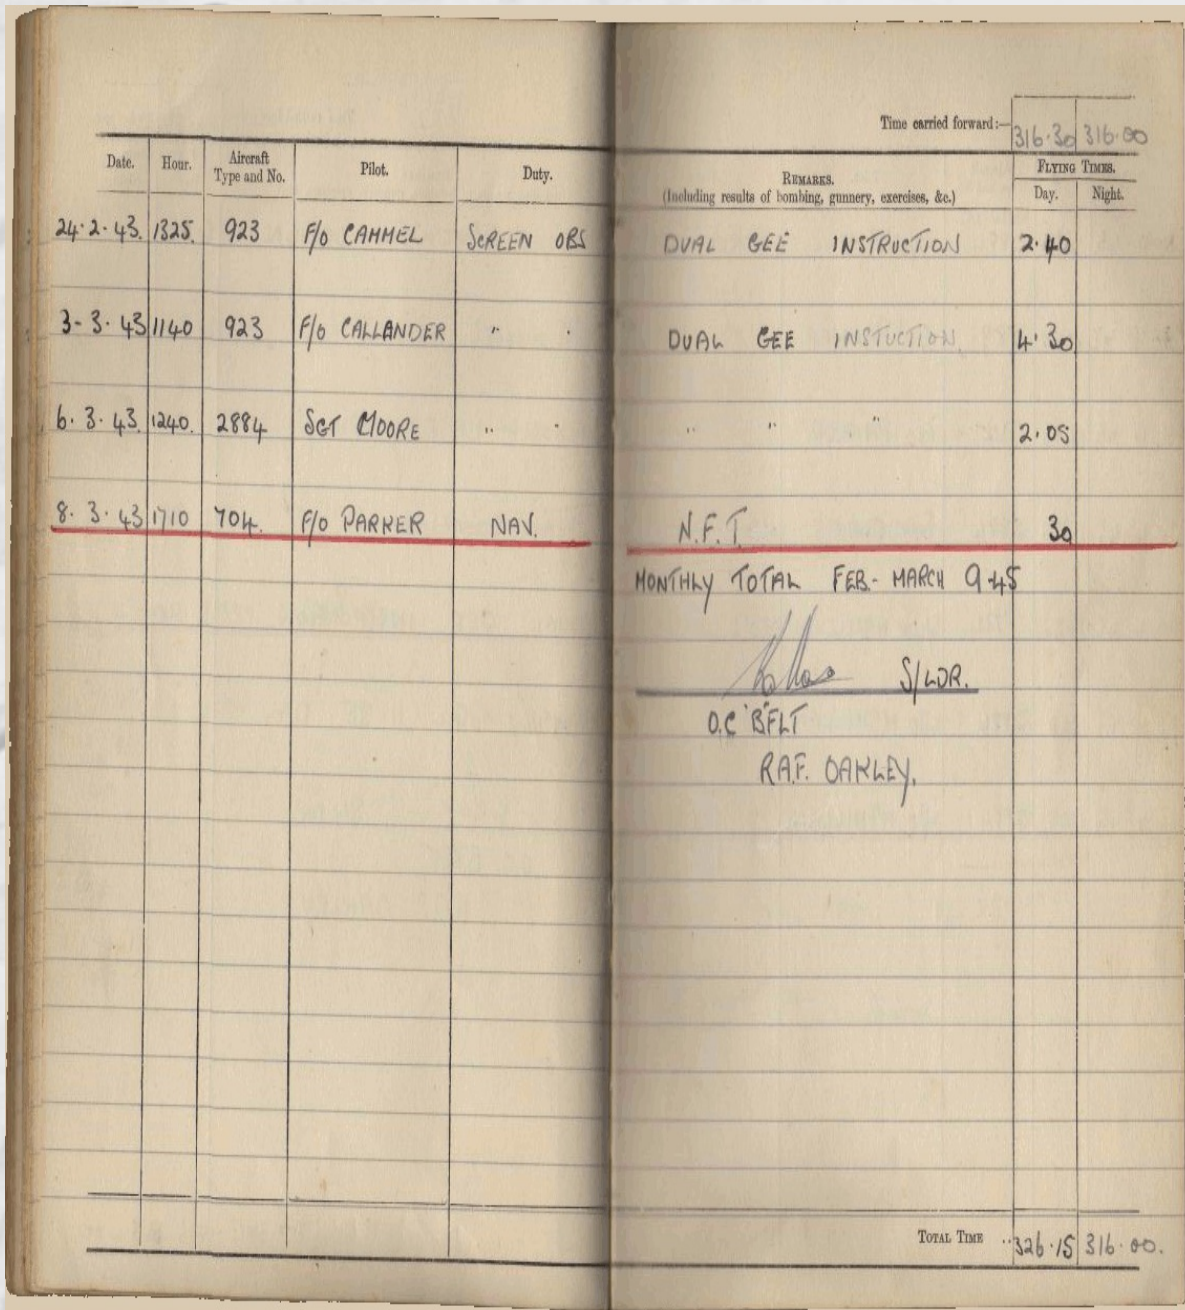 Time carried forward:— 316·30 316·00
Date. Hour. Aircraft Type and No. Pilot. Duty. REMARKS. (Including results of bombing, gunnery, exercises, &c.) FLYING TIMES. Day. Night.
24·2·43. 1325. 923 F/O CAMMEL SCREEN OBS DUAL GEE INSTRUCTION 2·40
3-3·43 1140 923 F/O CALLANDER " " DUAL GEE INSTUCTION. 4·30
6·3·43. 1240. 2884 SGT MOORE " " " " " 2·05
8·3·43 1710 704. F/O PARKER NAV. N.F.T. 30
MONTHLY TOTAL FEB- MARCH 9·45
S/LDR.
O.C 'B' FLT
R.A.F. OAKLEY.
TOTAL TIME .. 326·15 316·00.